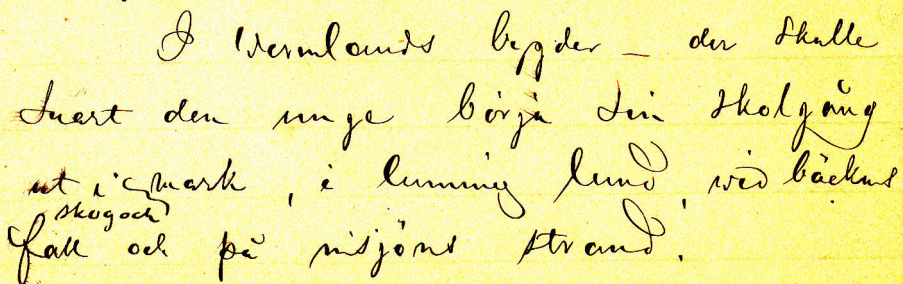 I Vermlands bygder – der skulle
snart den unge börja sin skolgång
ut i skog och mark, i lummig lund, vid bäckens
fall och på insjöns strand.